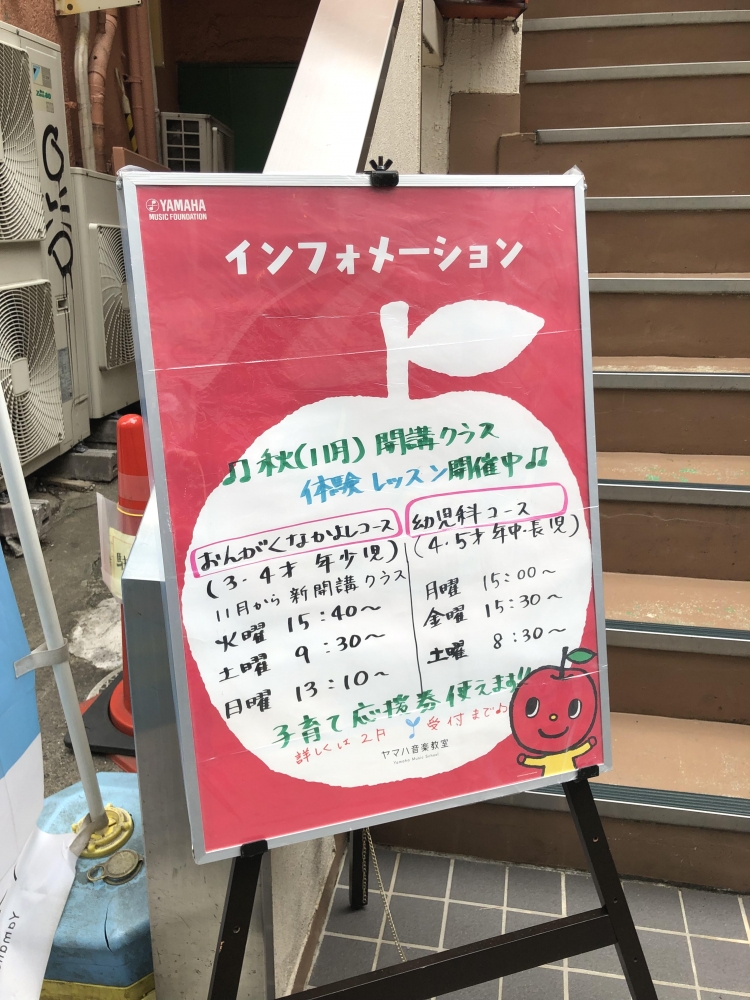 YAMAHA
MUSIC FOUNDATION
インフォメーション
♫秋(11月)開講クラス
体験レッスン開催中♫
おんがくなかよしコース
(3・4才 年少児)
11月から 新開講クラス
火曜 15:40〜
土曜 9:30〜
日曜 13:10〜
幼児科コース
(4・5才 年中・長児)
月曜 15:00〜
金曜 15:30〜
土曜 8:30〜
子育て応援券使えます!!
詳しくは2F 受付まで♪
ヤマハ音楽教室
Yamaha Music School